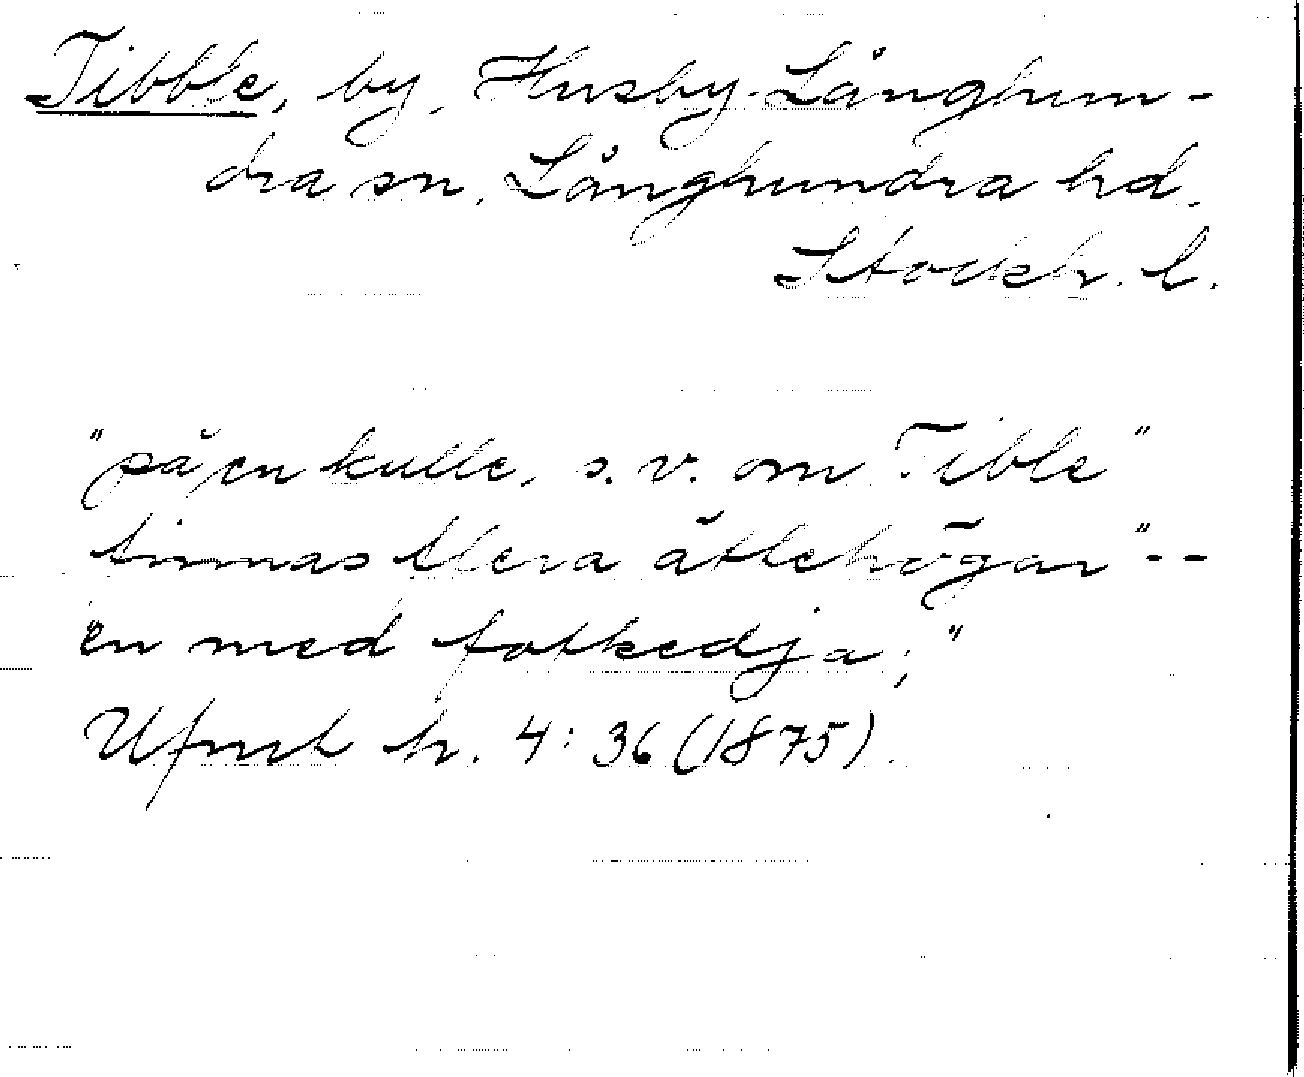 Tibble, by, Husby-Långhun-
dra sn, Långhundra hd.
Stockh. l.
"på en kulle, s. v. om Tible"
finnas flera ättehögar" --
"en med fotkedja;"
Ufmt h. 4: 36 (1875).